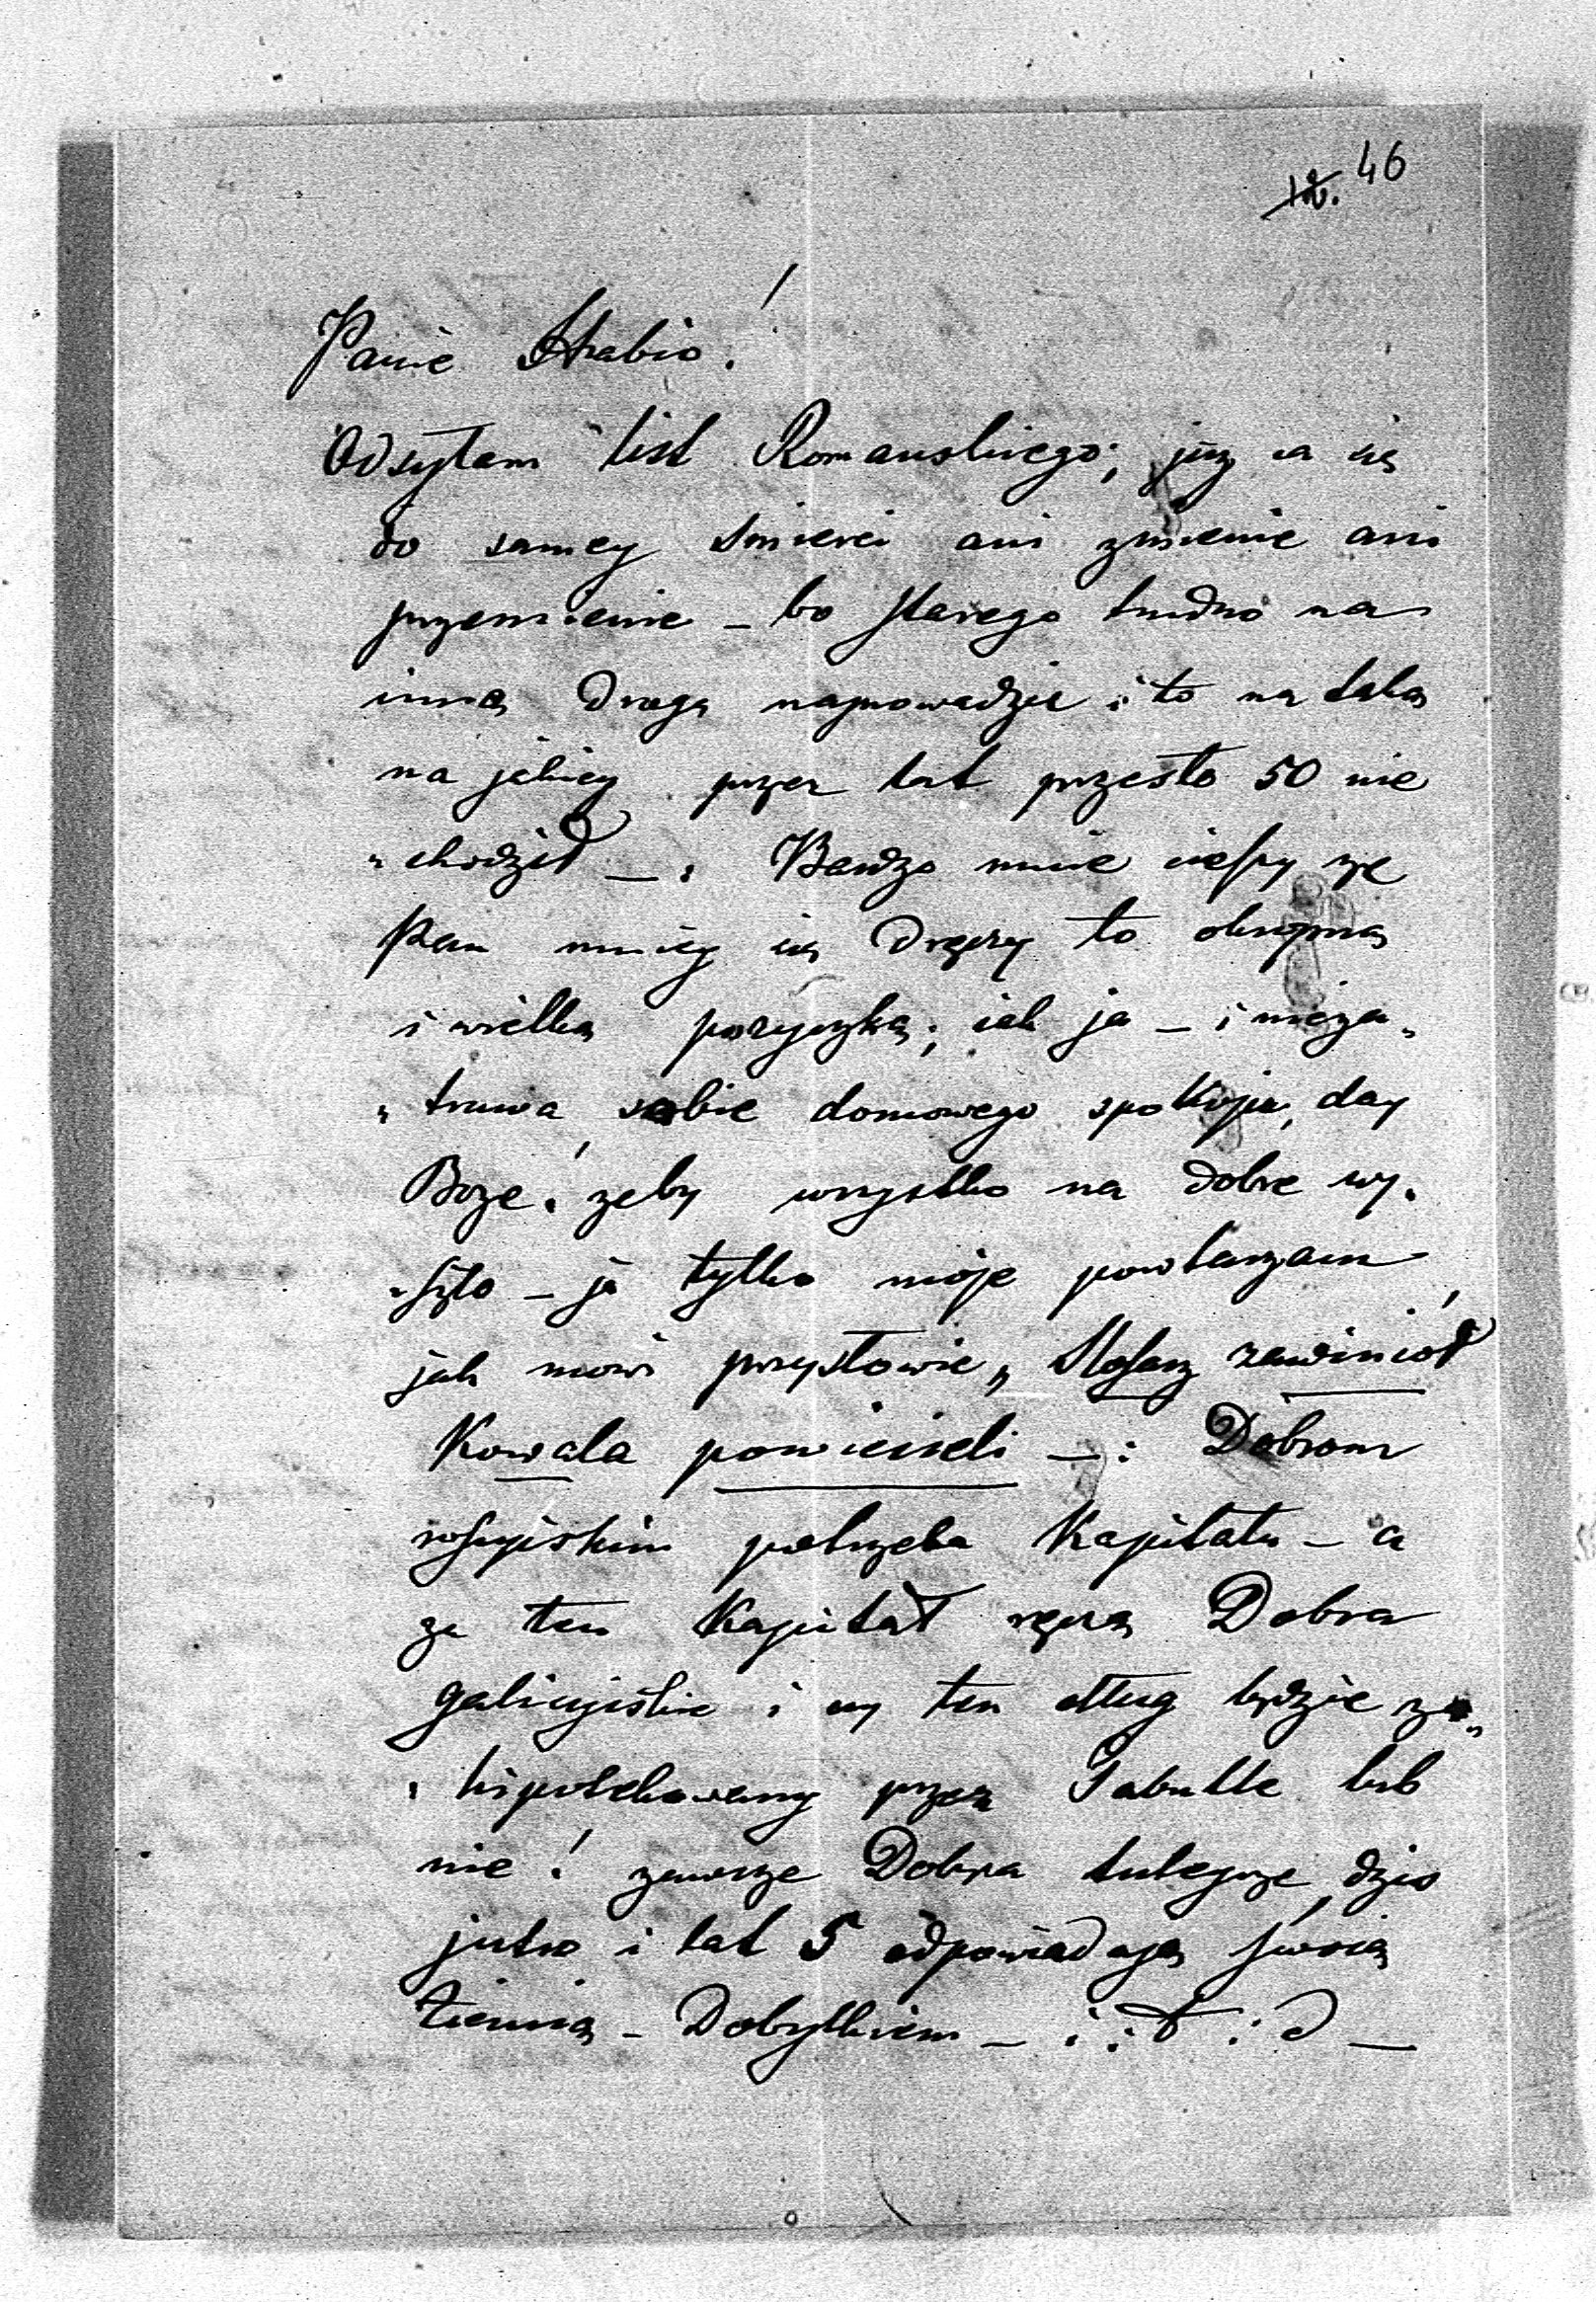 12. 46
Panie Hrabio!
Odsyłam list Romanskiego; juz ia się
do samey smierci ani zmienie ani
przemienie – bo starego trudno na
inną drogę naprowadzic i to na taką
na jakiey przez lat przeszło 50 nie
„chodził –: Bardzo mnie cieszy ze
Pan mniey się dręczy to okropną
i wielką pozyczką; iak ja – i nieza„
„truwa sobie domowego spokoju, day
Boze! zeby wszystko na dobre wy„
„szło – ja tylko moje powtarzam,
jak mowi przysłowie „Slosarz zawinioł
Kowala powiesieli –: Dobrom
rossyiskim potrzeba Kapitału – a
za ten Kapitał ręczą Dobra
galicyiskie i czy ten dług będzie za„
„hipotekowany przez Tabulle lub
nie! zawsze Dobra tuteysze, dzis
jutro i lat 5 odpowiadają swoią
ziemią – Dobytkiem – i: t: d –